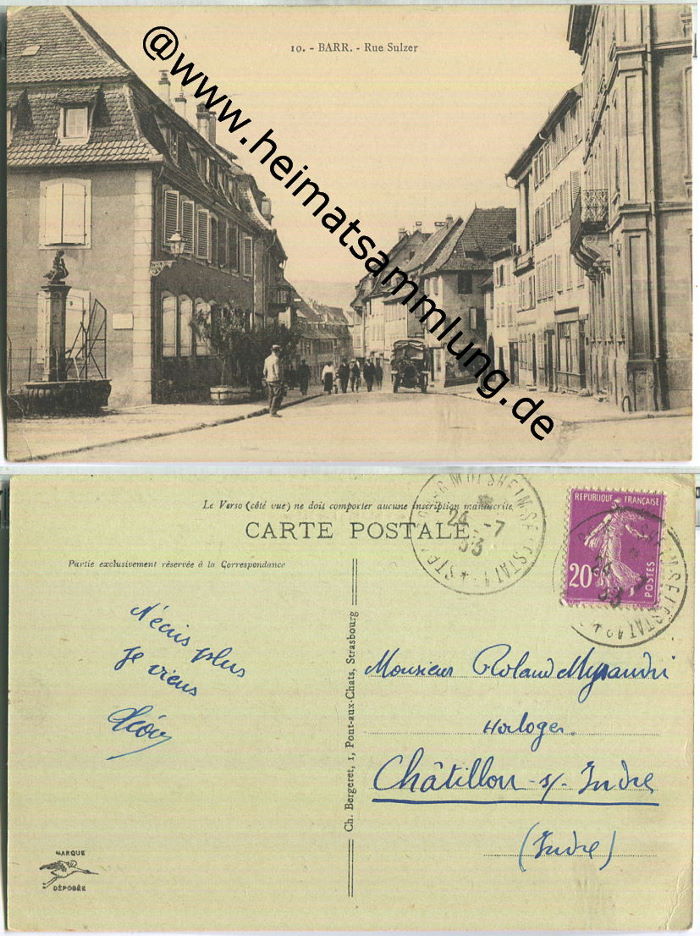 10. - BARR. - Rue Sulzer
@www.heimatsammlung.de
Le Verso (côté vue) ne doit comporter aucune inscription manuscrite.
CARTE POSTALE
Partie exclusivement réservée à la Correspondance
24 -7
33
REPUBLIQUE FRANÇAISE
20c
POSTES
N'écris plus
Je viens
Léon
Monsieur Roland
Horloger.
Châtillon-s/-Indre
(Indre)
Ch. Bergeret, 1, Pont-aux-Chats, Strasbourg
MARQUE
DÉPOSÉE